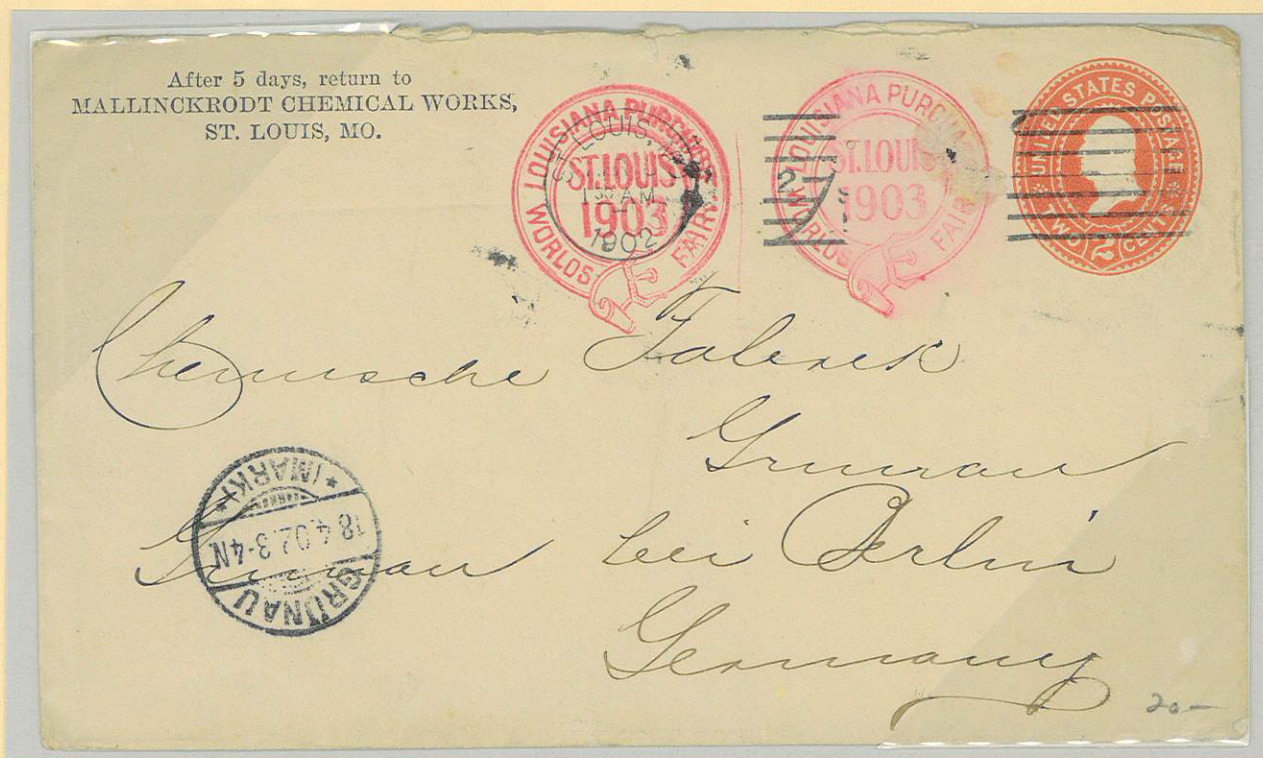 After 5 days, return to
MALLINCKRODT CHEMICAL WORKS,
ST. LOUIS, MO.
LOUISIANA PURCHASE
ST. LOUIS
1903
WORLDS FAIR
ST. LOUIS, MO.
1 30 AM
1902
LOUISIANA PURCHASE
ST. LOUIS
1903
WORLDS FAIR
2
UNITED STATES POSTAGE
TWO 2 CENTS
Chemische Fabrik
Grunau
Grunau bei Berlin
Germany
GRÜNAU
18.4.02.3-4N
*(MARK)*
20-